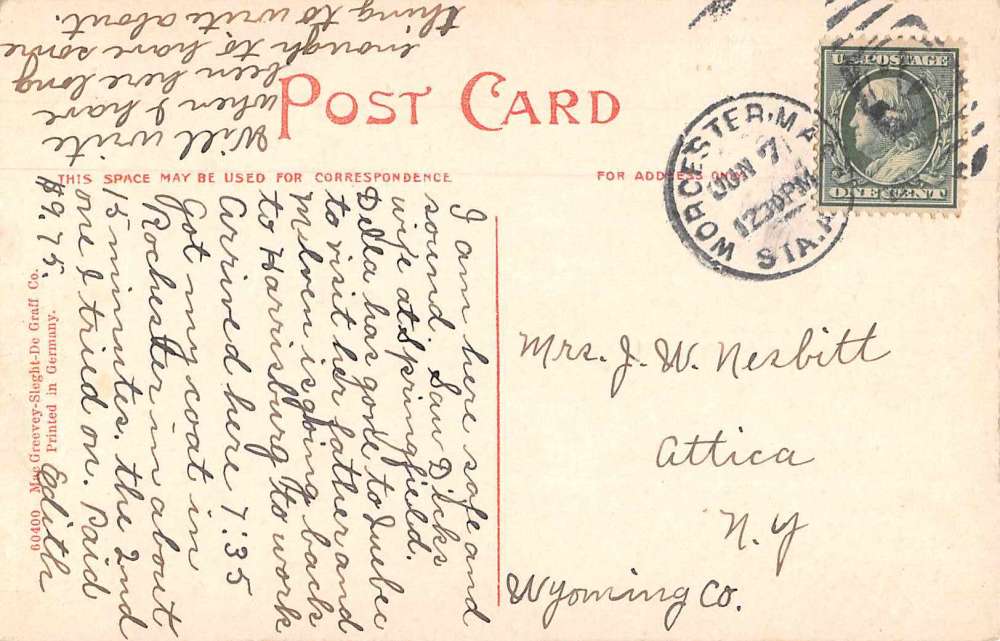 POST CARD
THIS SPACE MAY BE USED FOR CORRESPONDENCE
FOR ADDRESS ONLY
WORCESTER, MA
JUN 7
12 30 PM
STA. A
U.S. POSTAGE
ONE CENT
Mrs. J. W. Nesbitt
Attica
N. Y
Wyoming Co.
I am here safe and
sound. Saw Dicks
wife at Springfield.
Della has gone to Quebec
to visit her father and
Melven is going back
to Harrisburg to work
Arrived here 7:35
Got my coat in
Rochester in about
15 minutes. the 2nd
one I tried on. Paid
$9.75. Edith
Will write
when I have
been here long
enough to have some
thing to write about.
60400 Mac Greevey-Sleght-De Graff Co.
Printed in Germany.